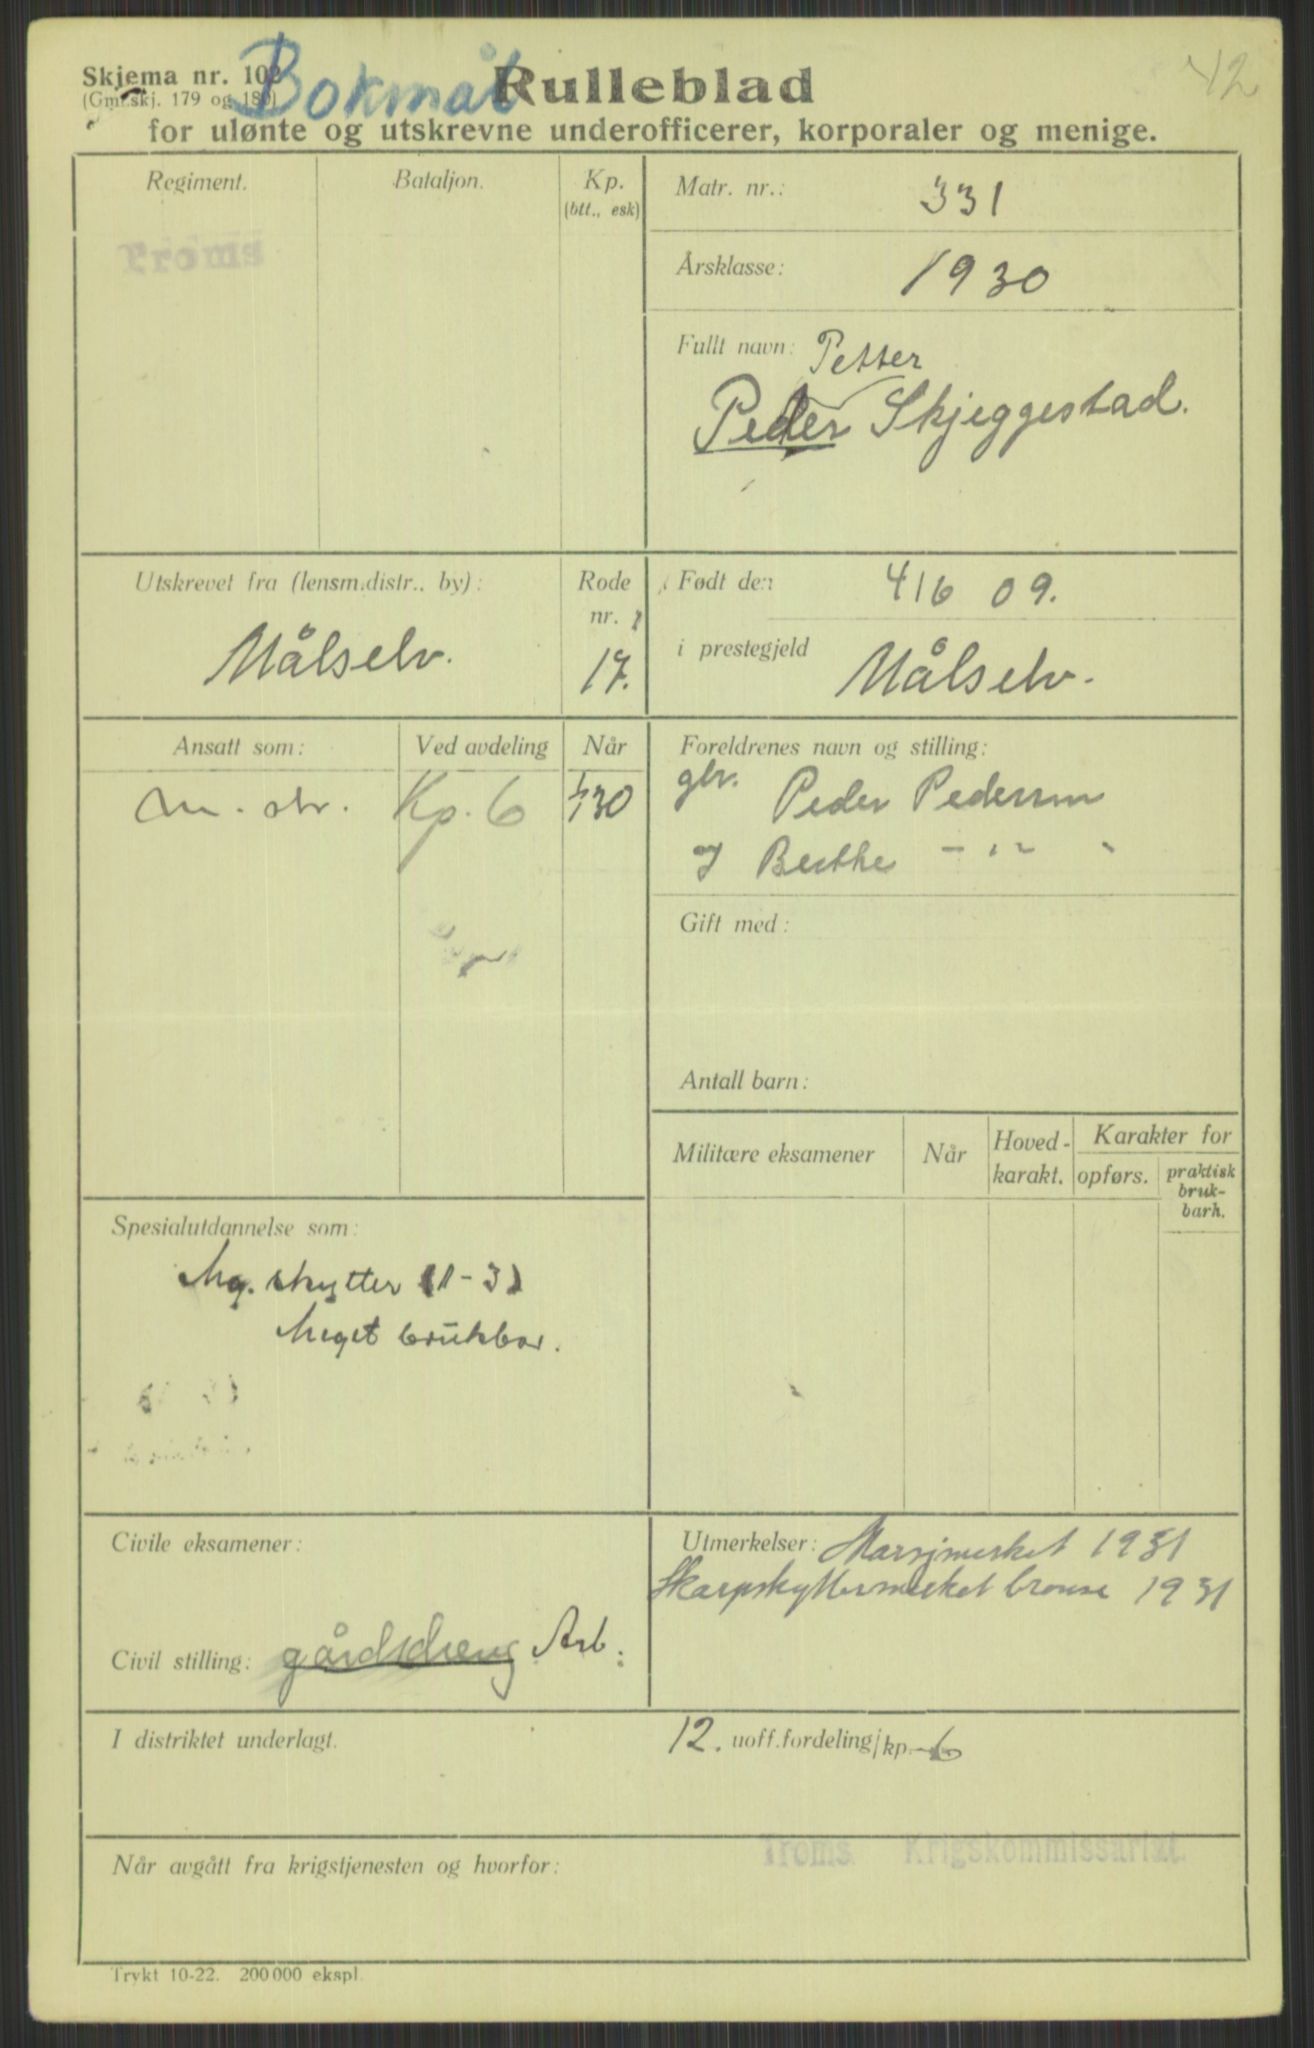 Skjema nr. 102 Bokmål Rulleblad 42
(Gml. skj. 179 og 180)
for ulønte og utskrevne underofficerer, korporaler og menige.
Regiment. Bataljon. Kp. (btt., esk)
Troms
Matr. nr.: 331
Årsklasse: 1930
Fullt navn: Petter
Peder Skjeggestad.
Utskrevet fra (lensm.distr., by): Rode nr.
Målselv. 17.
Født den 4/6 09.
i prestegjeld Målselv.
Ansatt som: Ved avdeling Når
Kp. 6 1/1 30
Foreldrenes navn og stilling:
gbr. Peder Pedersen
og Berthe - " - "
Gift med:
Antall barn:
Militære eksamener Når Hoved-karakt. Karakter for
opførs. praktisk bruk-barh.
Spesialutdannelse som:
Mg. skytter (1-3)
Meget brukbar.
Civile eksamener:
Civil stilling: gårdsdreng Arb.
Utmerkelser: Marsjmerket 1931
Skarpskyttermerket bronse 1931
I distriktet underlagt. 12. uoff.fordeling/kp. 6
Troms Krigskommissariat.
Når avgått fra krigstjenesten og hvorfor:
Trykt 10-22. 200 000 ekspl.